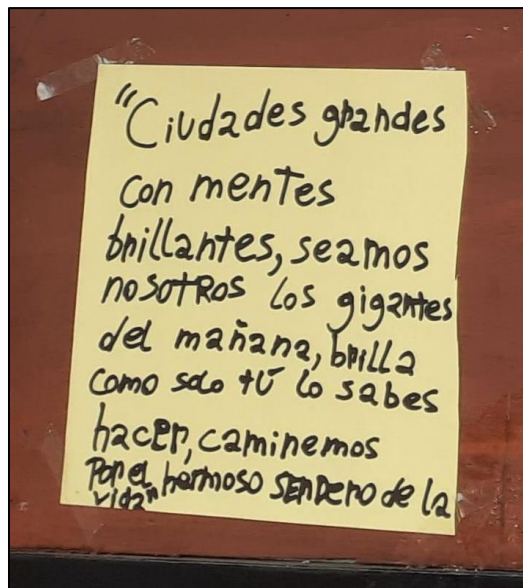 "Ciudades grandes
con mentes
brillantes, seamos
nosotros los gigantes
del mañana, brilla
como solo tú lo sabes
hacer, caminemos
Por el hermoso sendero de la
vida"